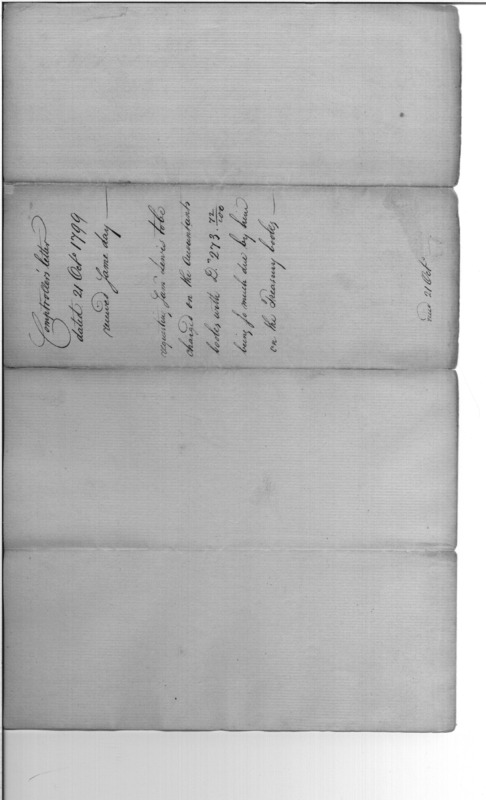 Comptrollers letter
dated 21 Octr 1799
received Same day —
requesting Saml Lewis to be
charged on the Accountants
books with Ds 273 72/100
being so much due by him
on the Treasury books —
recd 21 Octr